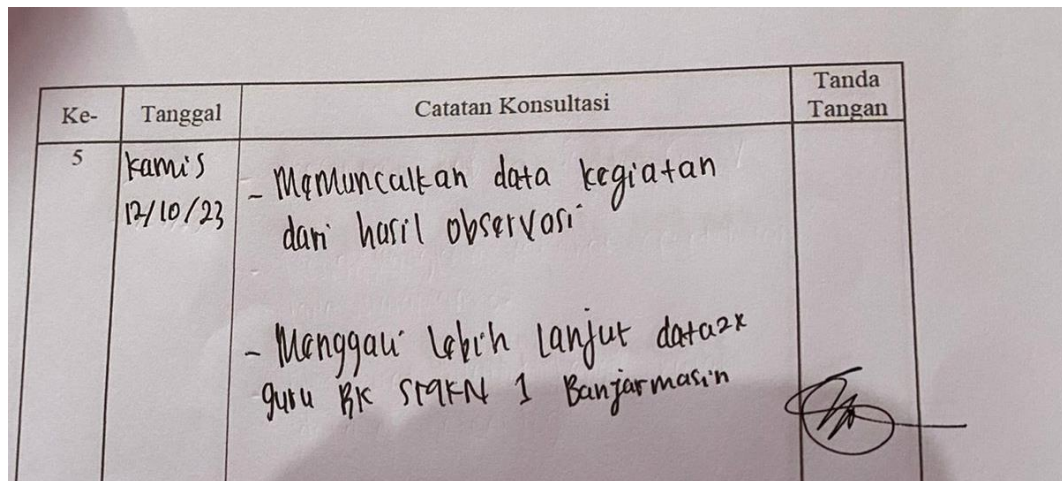 Ke- Tanggal Catatan Konsultasi Tanda Tangan
5 Kamis 12/10/23
- Memunculkan data kegiatan
dari hasil observasi
- Menggali lebih lanjut data2x
guru BK SMKN 1 Banjarmasin